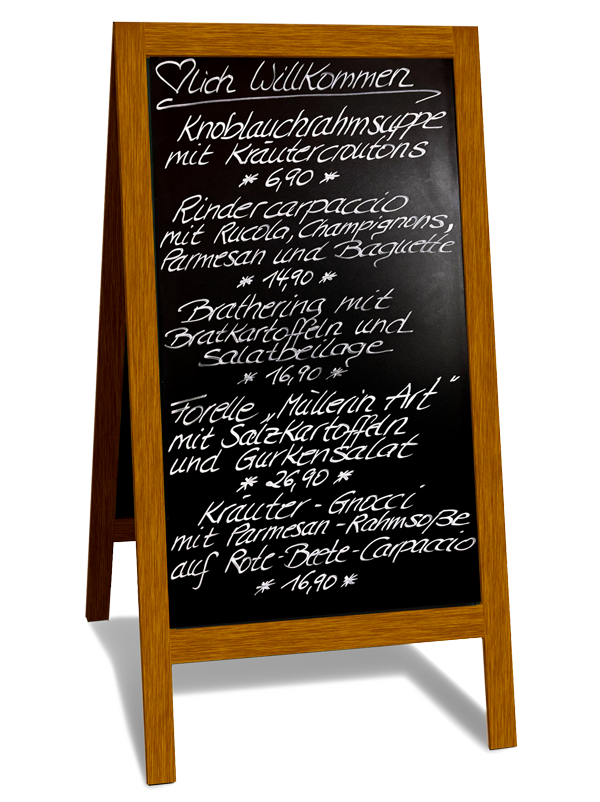 ♡lich Willkommen
Knoblauchrahmsuppe
mit Kräutercroutons
* 6,90 *
Rindercarpaccio
mit Rucola, Champignons,
Parmesan und Baguette
* 14,90 *
Brathering mit
Bratkartoffeln und
Salatbeilage
* 16,90 *
Forelle „Müllerin Art“
mit Salzkartoffeln
und Gurkensalat
* 26,90 *
Kräuter-Gnocci
mit Parmesan-Rahmsoße
auf Rote-Beete-Carpaccio
* 16,90 *